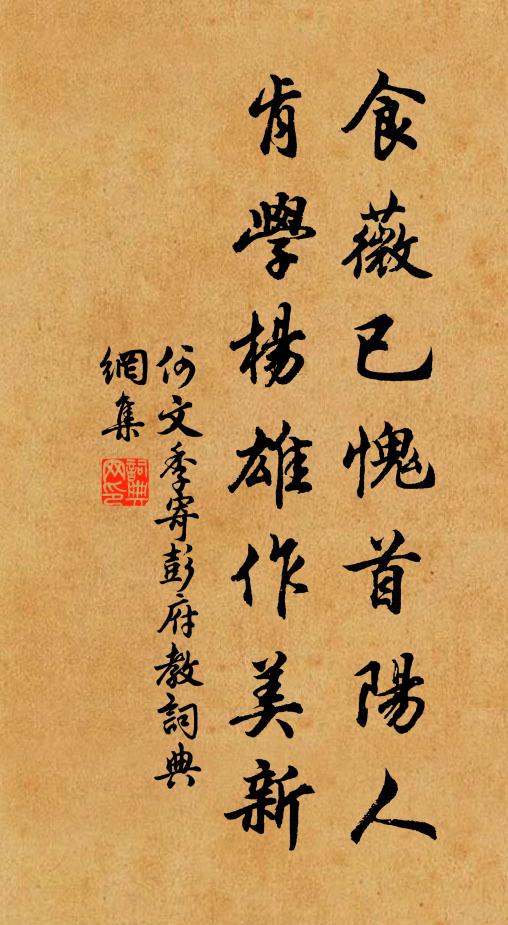 食薇已愧首陽人
肯學楊雄作美新
何文季寄彭府教詞典
網集
詞典網印